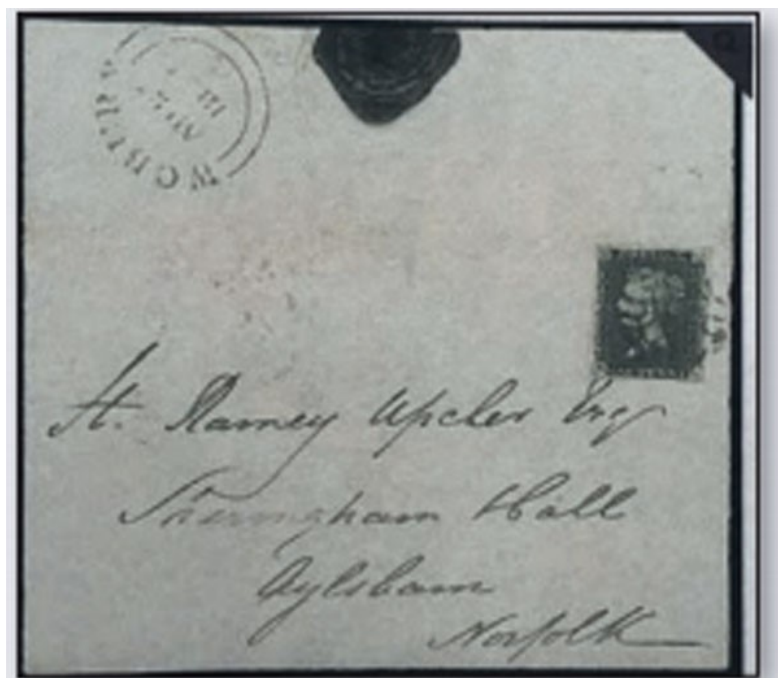 WOBURN
H. Ramey Upcher Esq
Sheringham Hall
Aylsham
Norfolk